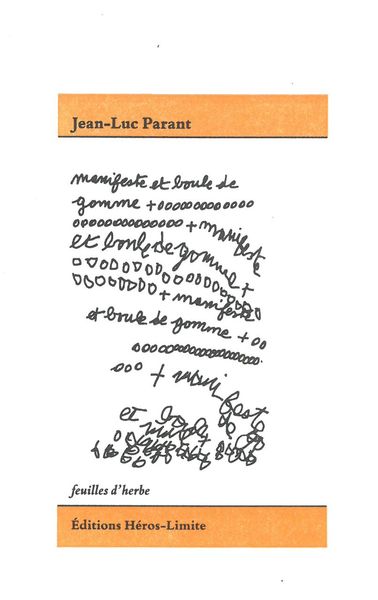 Jean-Luc Parant
manifeste et boule de
gomme + ooooooooooooo
ooooooooooooo + manifeste
et boule de gomme +
oooooooooooooo
ooooooo + manifeste
et boule de gomme + oo
ooooooooooooooooo
ooo +
et
feuilles d'herbe
Éditions Héros-Limite